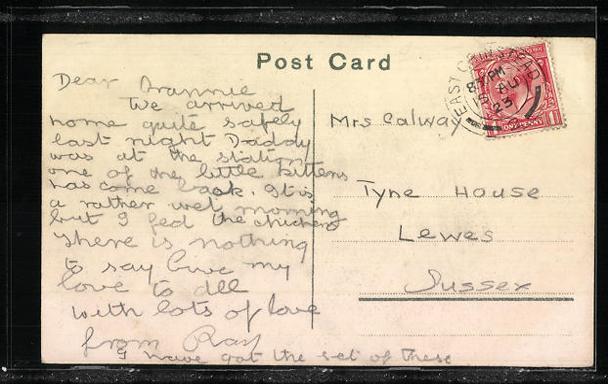 Post Card
Dear Grannie
We arrived
home quite safely
last night Daddy
was at the station
one of the little kittens
has come back. It is
a rather wet morning
but I fed the chickens
There is nothing
to say Give my
love to all
with lots of love
from Ray
I have got the set of these
Mrs Calway
Tyne House
Lewes
Sussex
EAST GRINSTEAD
PM
15 AU
23
ONE PENNY